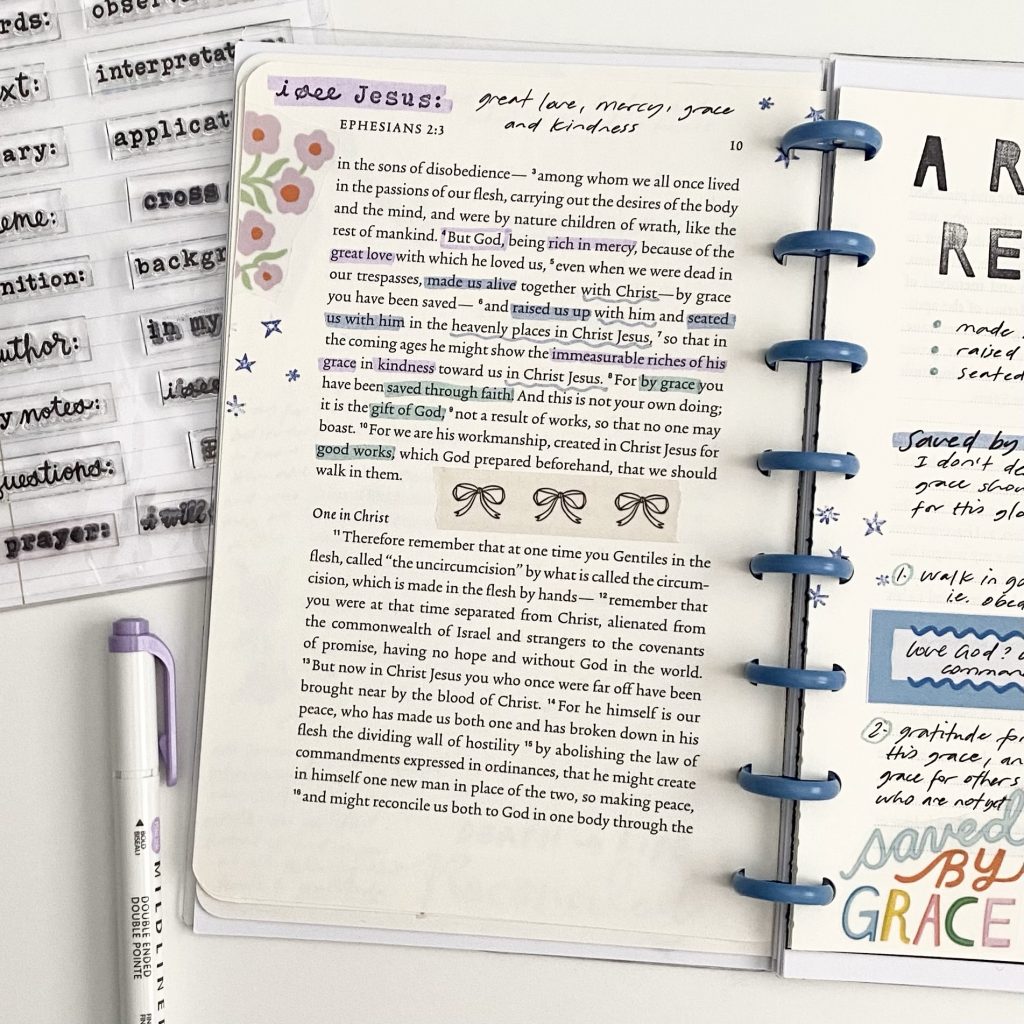 observ
rds:
interpretat
xt:
applicat
ary:
cross
eme:
backgr
nition:
in my
uthor:
i see
y notes:
questions:
i will
prayer:
i see Jesus:
great love, mercy, grace
and kindness
EPHESIANS 2:3
10
in the sons of disobedience— ³among whom we all once lived
in the passions of our flesh, carrying out the desires of the body
and the mind, and were by nature children of wrath, like the
rest of mankind. ⁴But God, being rich in mercy, because of the
great love with which he loved us, ⁵even when we were dead in
our trespasses, made us alive together with Christ—by grace
you have been saved— ⁶and raised us up with him and seated
us with him in the heavenly places in Christ Jesus, ⁷so that in
the coming ages he might show the immeasurable riches of his
grace in kindness toward us in Christ Jesus. ⁸For by grace you
have been saved through faith. And this is not your own doing;
it is the gift of God, ⁹not a result of works, so that no one may
boast. ¹⁰For we are his workmanship, created in Christ Jesus for
good works, which God prepared beforehand, that we should
walk in them.
One in Christ
¹¹Therefore remember that at one time you Gentiles in the
flesh, called “the uncircumcision” by what is called the circum-
cision, which is made in the flesh by hands— ¹²remember that
you were at that time separated from Christ, alienated from
the commonwealth of Israel and strangers to the covenants
of promise, having no hope and without God in the world.
¹³But now in Christ Jesus you who once were far off have been
brought near by the blood of Christ. ¹⁴For he himself is our
peace, who has made us both one and has broken down in his
flesh the dividing wall of hostility ¹⁵by abolishing the law of
commandments expressed in ordinances, that he might create
in himself one new man in place of the two, so making peace,
¹⁶and might reconcile us both to God in one body through the
A R
RE
made
raised
seated
saved by
I don't de
grace show
for this glo
1. walk in go
i.e. obed
love God? 
comman
2. gratitude for
this grace, an
grace for others
who are not yet
saved
BY
GRACE
BOLD
BISEAU
MILDLINER
DOUBLE ENDED
DOUBLE POINTE